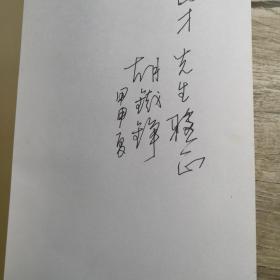 才先生雅正
胡鐵錚
甲申夏